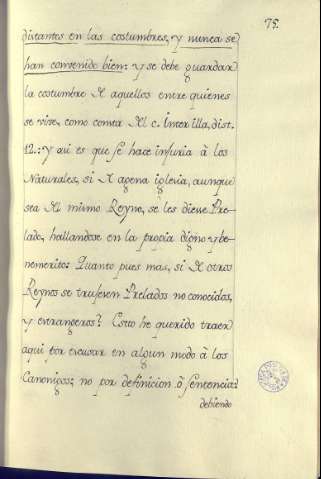 75.
distantes en las costumbres, y nunca se
han convenido bien: y se debe guardar
la costumbre de aquellos entre quienes
se vive, como consta del c. Inter illa, dist.
12.: y asi es que se hace injuria à los
Naturales, si de agena iglesia, aunque
sea del mismo Reyno, se les diesse Pre-
lado, hallandose en la propia digno y be-
nemerito: Quanto pues mas, si de otros
Reynos se truxesen Prelados no conocidos,
y estrangeros? Esto he querido traer
aqui por escusar en algun modo à los
Canonigos; no por definicion ò sentencia:
debiendo